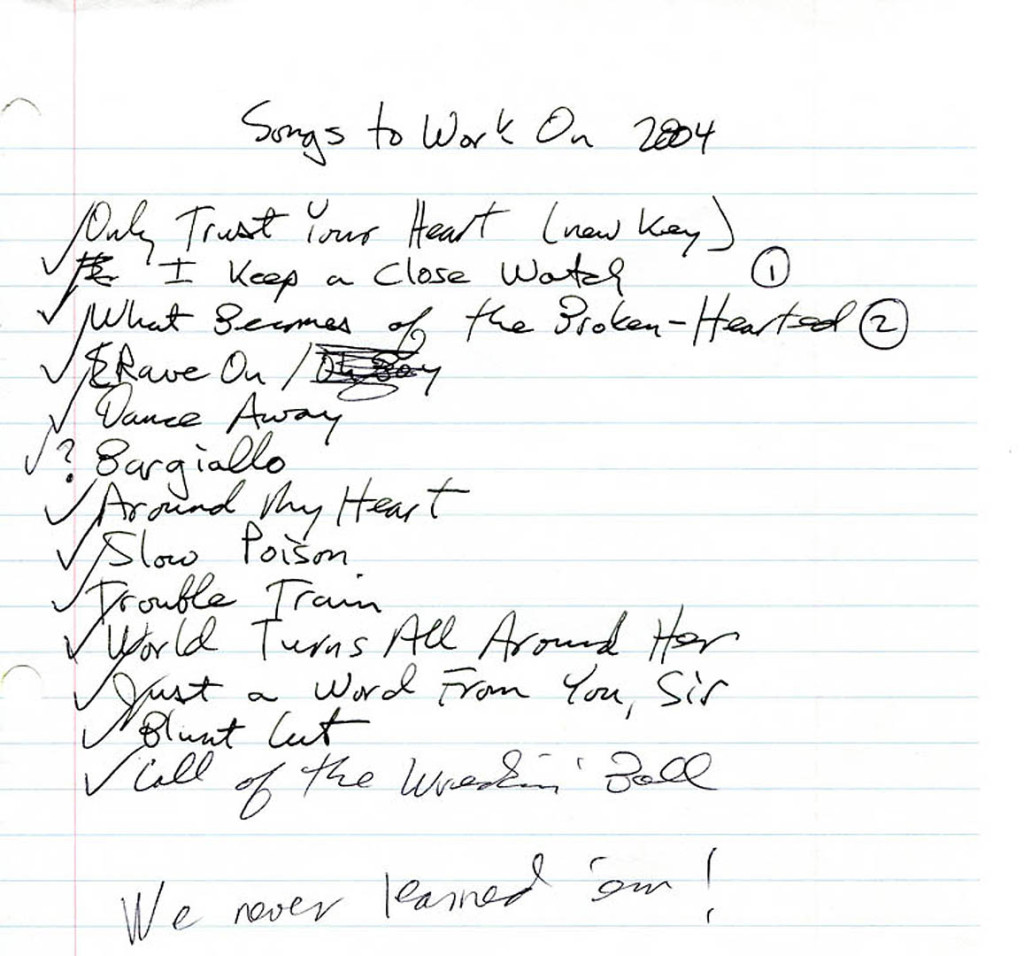 Songs to Work On 2004
✓ Only Trust Your Heart (new key)
✓ I Keep a Close Watch ①
✓ What Becomes of the Broken-Hearted ②
✓ Rave On /
✓ Dance Away
✓ ? Bargiallo
✓ Around My Heart
✓ Slow Poison
✓ Trouble Train
✓ World Turns All Around Her
✓ Just a Word From You, Sir
✓ Blunt Cut
✓ Call of the Wreckin' Ball
We never learned 'em!